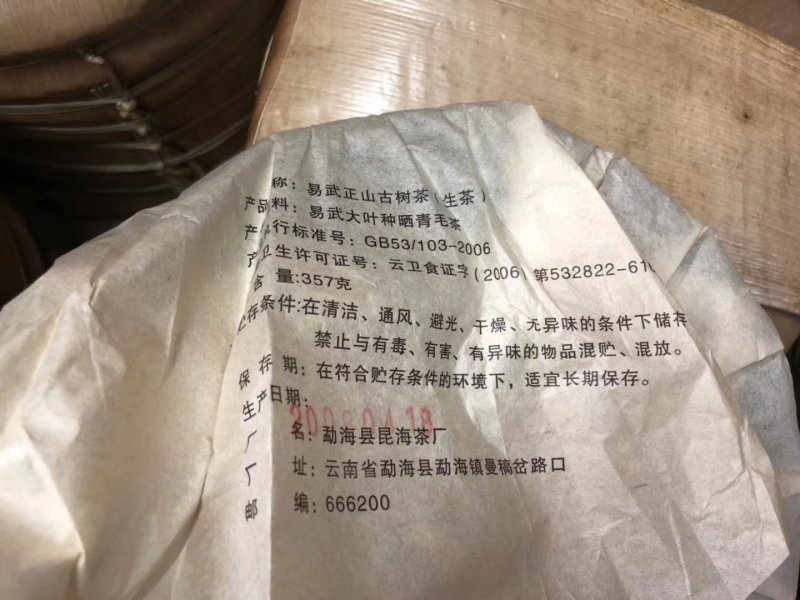 称：易武正山古树茶（生茶）
产品 料：易武大叶种晒青毛茶
产 行标准号：GB53/103-2006
产 卫生许可证号：云卫食证字（2006）第532822-61
含 量:357克
存条件:在清洁、通风、避光、干燥、无异味的条件下储存
禁止与有毒、有害、有异味的物品混贮、混放。
保 存 期：在符合贮存条件的环境下，适宜长期保存。
生产日期：
厂 名：勐海县昆海茶厂
厂 址：云南省勐海县勐海镇曼稿岔路口
邮 编：666200